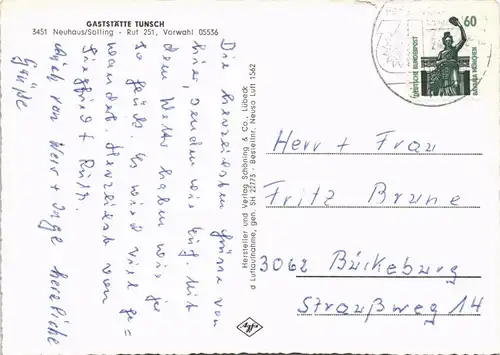 GASTSTÄTTE TUNSCH
3451 Neuhaus/Solling - Ruf 251, Vorwahl 05536
Die herzlichsten Grüsse von
hier, senden wir Euch. Mit
dem Wetter haben wir ja
so Glück. Es wird viel ge=
wandert. Herzlichst von
Siegfried + Ruth.
Auch von Wern + Inge herzliche
Grüße
Hersteller und Verlag Schöning & Co., Lübeck
d Luftaufnahme, gen. SH 22/73 - Bestellnr. Neuso Luft 1562
agfa
60
DEUTSCHE BUNDESPOST
BAVARIA MÜNCHEN
Herr + Frau
Fritz Brune
3062 Bückeburg
Straußweg 14